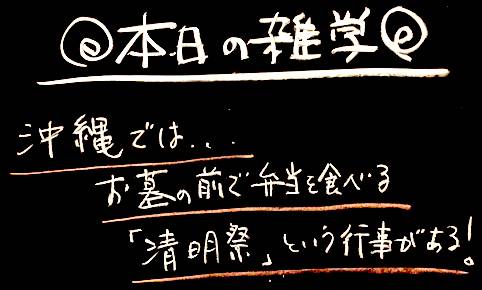 本日の雑学
沖縄では...
お墓の前で弁当を食べる
「清明祭」という行事がある!